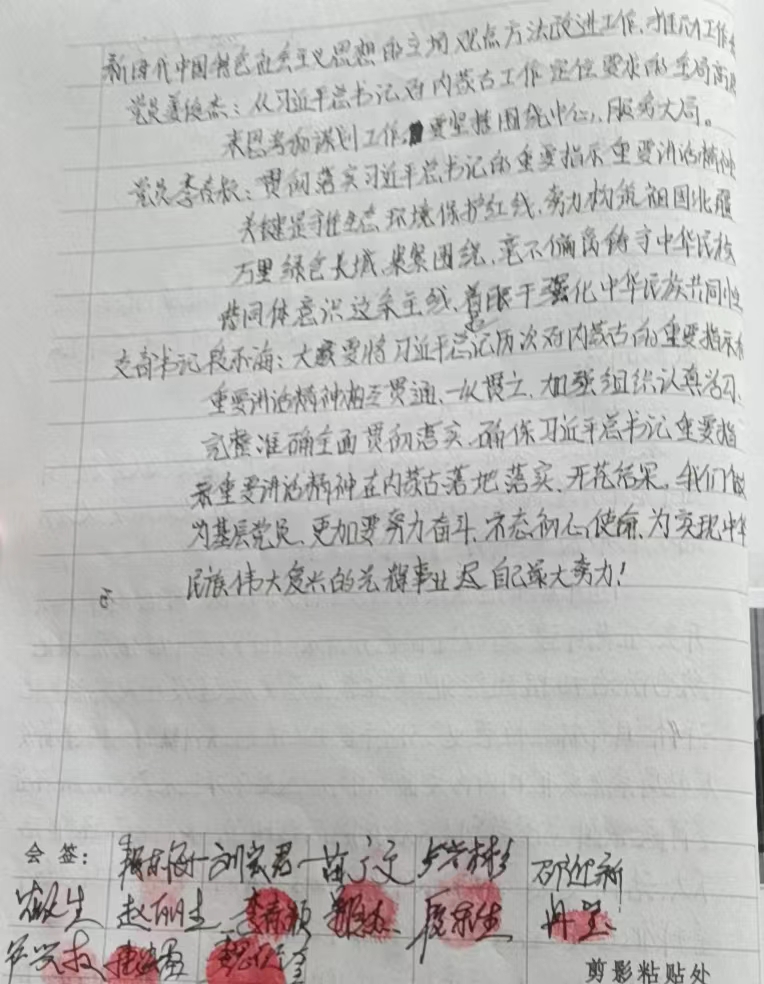 新时代中国特色社会主义思想的立场观点方法改进工作、推动工作
党员姜俊杰：从习近平总书记对内蒙古工作定位要求的全局高度
来思考和谋划工作，要坚持围绕中心、服务大局。
党员李春板：贯彻落实习近平总书记的重要指示重要讲话精神
关键是守住生态环境保护红线，努力构筑祖国北疆
万里绿色长城，紧紧围绕、毫不偏离铸牢中华民族
共同体意识这条主线，着眼于强化中华民族共同性
支部书记段东海：大家要将习近平总记历次对内蒙古的重要指示和
重要讲话精神相互贯通、一以贯之，加强组织认真学习，
完整准确全面贯彻落实，确保习近平总书记重要指
示重要讲话精神在内蒙古落地落实、开花结果，我们做
为基层党员，更加要努力奋斗，不忘初心使命，为实现中华
民族伟大复兴的光辉事业尽自己最大努力！
会签：
赵丽生 邵迎新
剪影粘贴处